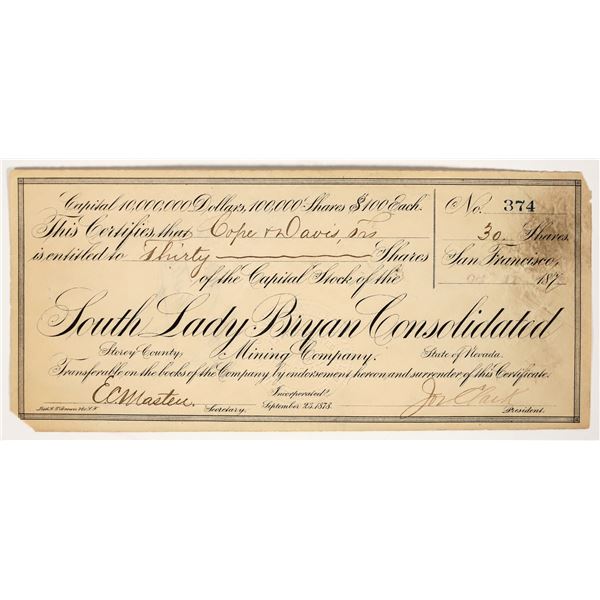 Capital 10,000,000 Dollars, 100,000 Shares $100 Each.
No. 374
This Certifies, that Cope & Davis, Trs
30 Shares.
is entitled to Thirty Shares
San Francisco,
of the Capital Stock of the
187
South Lady Bryan Consolidated
Storey County, Mining Company. State of Nevada.
Transferable on the books of the Company by endorsement hereon and surrender of this Certificate.
E.C. Masten. Secretary.
Incorporated September 25, 1878.
Jos Clark President.